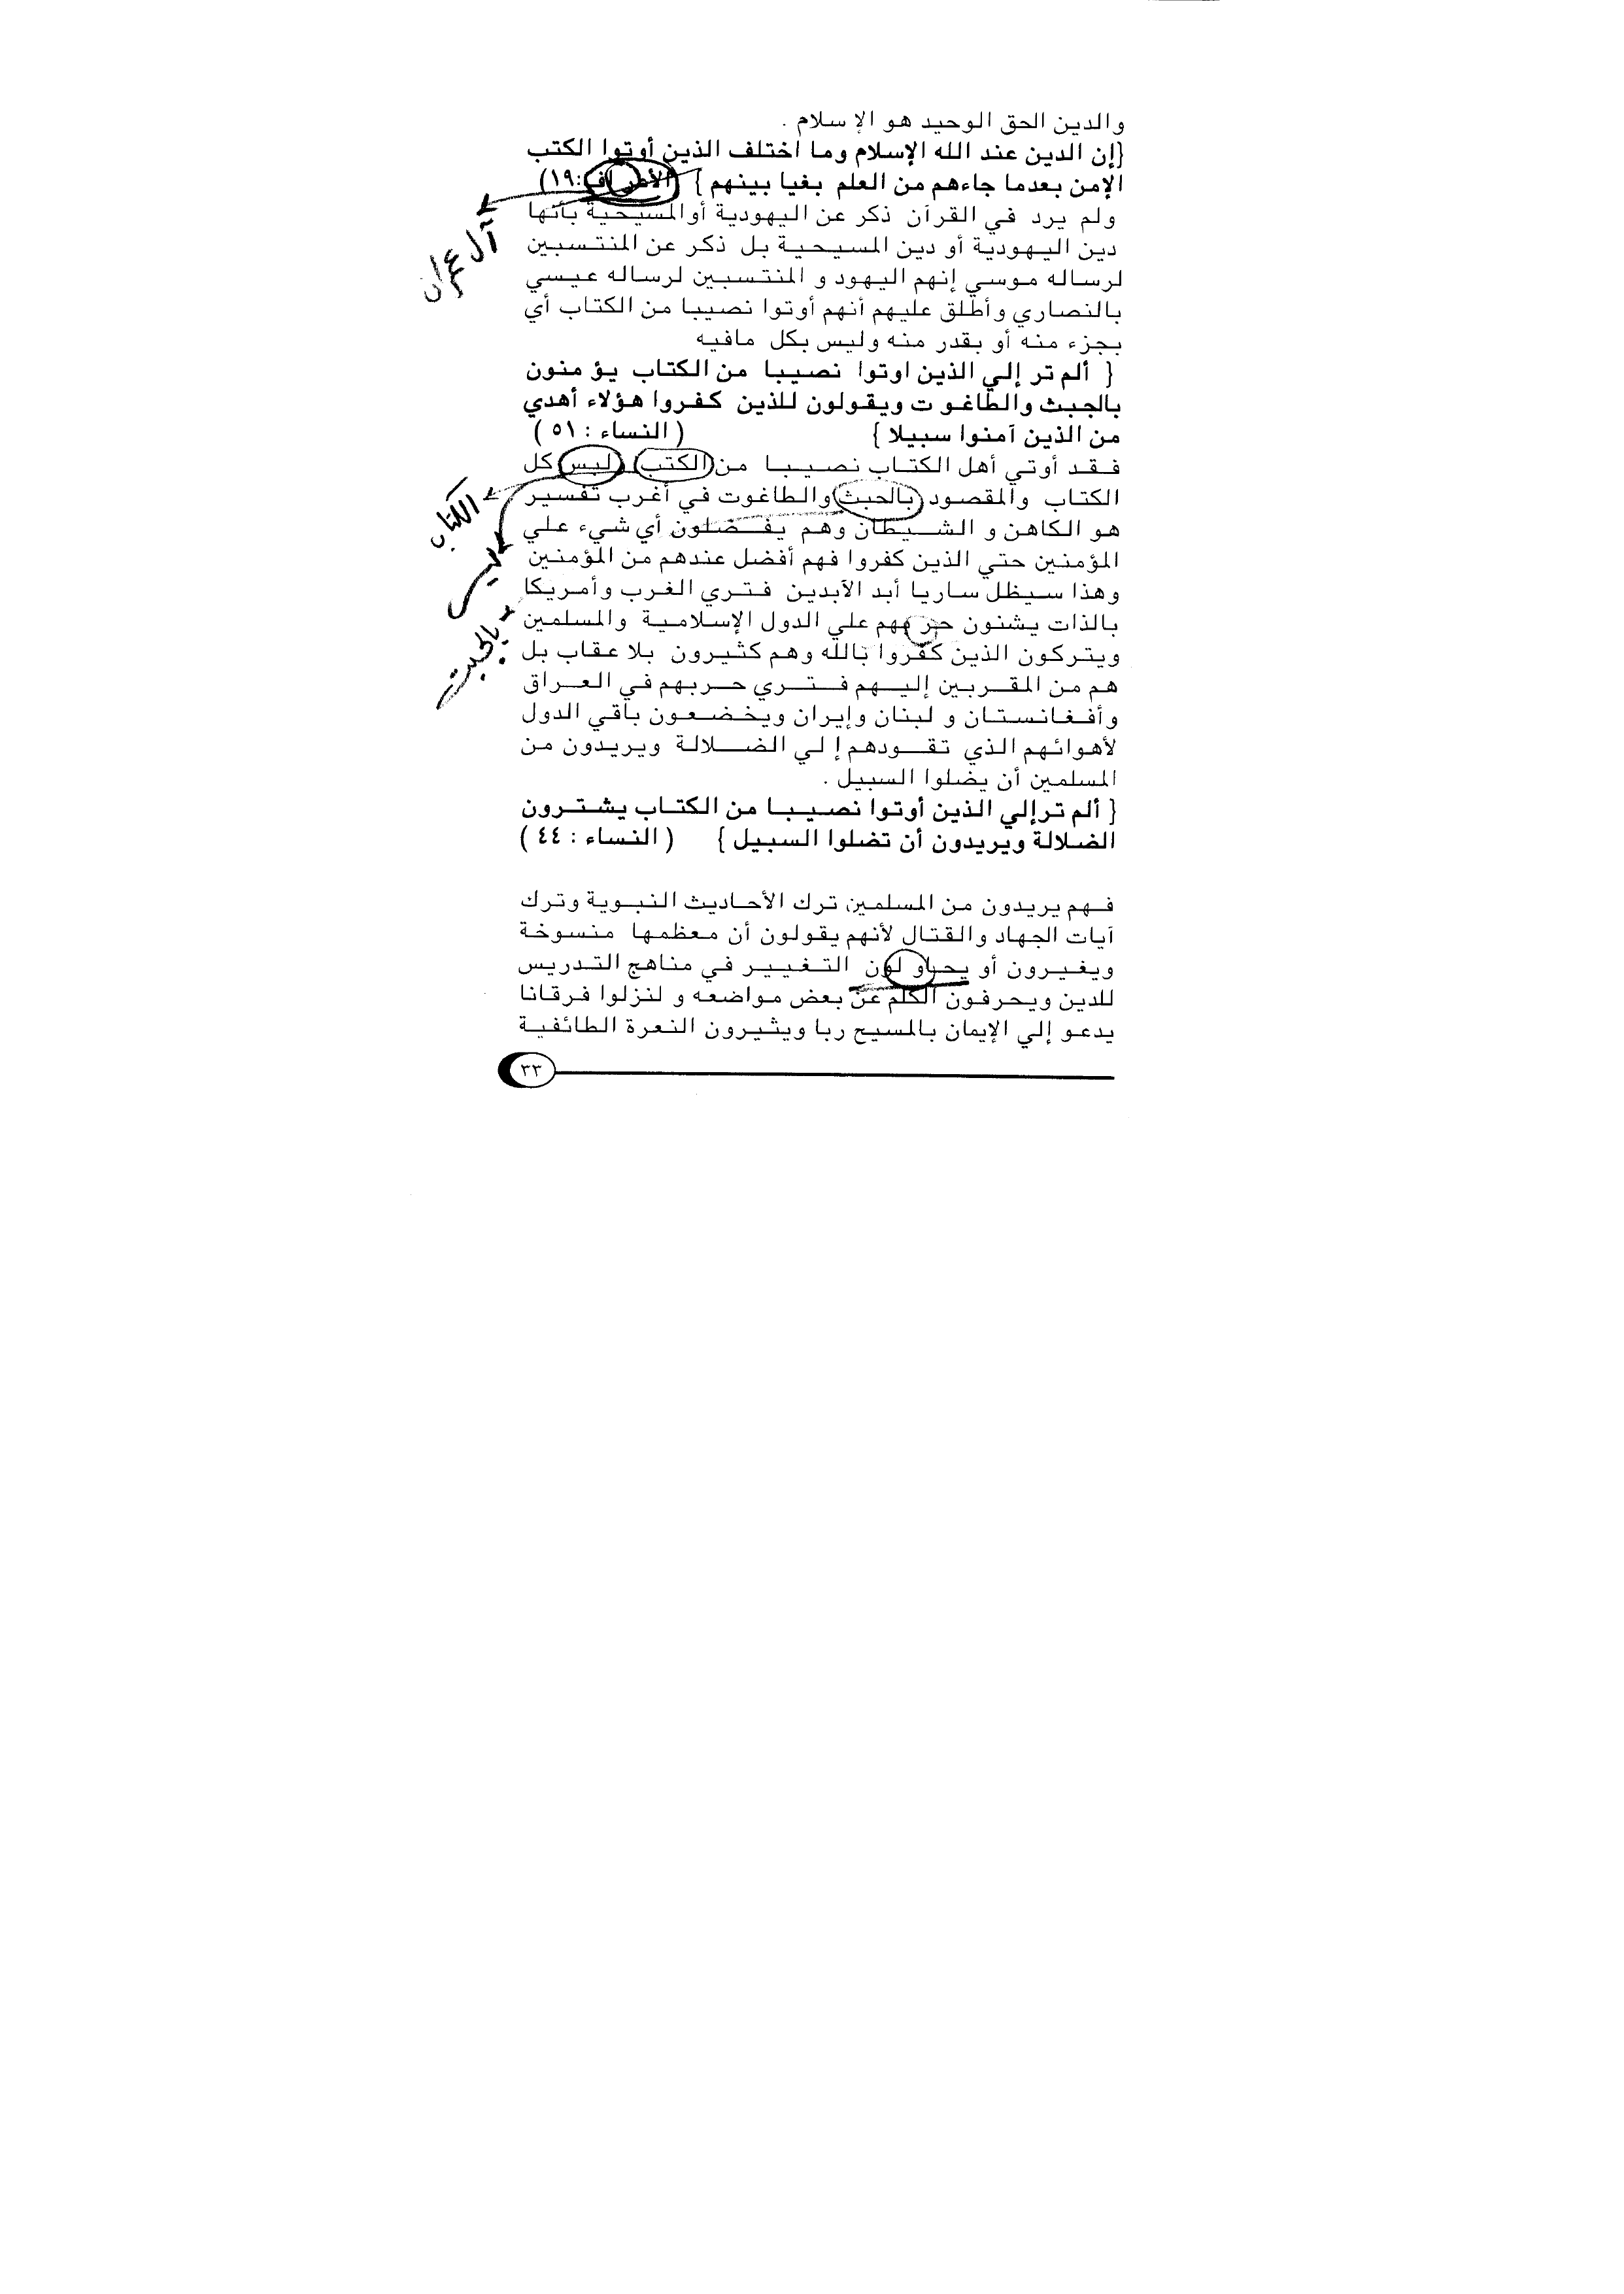 والدين الحق الوحيد هو الإ سلام .
{إن الدين عند الله الإسلام وما اختلف الذين أوتوا الكتب
الإمن بعدما جاءهم من العلم بغيا بينهم } ( :١٩)
آل عمران
ولم يرد في القرآن ذكر عن اليهودية أوالمسيحية بأنها
دين اليهودية أو دين المسيحية بل ذكر عن المنتسبين
لرساله موسي إنهم اليهود و المنتسبين لرساله عيسي
بالنصاري وأطلق عليهم أنهم أوتوا نصيبا من الكتاب أي
بجزء منه أو بقدر منه وليس بكل مافيه
{ ألم تر إلي الذين اوتوا نصيبا من الكتاب يؤ منون
بالجبث والطاغو ت ويقولون للذين كفروا هؤلاء أهدي
من الذين آمنوا سبيلا } ( النساء : ٥١ )
فقد أوتي أهل الكتاب نصيبا من الكتب لبس كل
الكتاب
ليس
بالجبت
الكتاب والمقصود بالحبث والطاغوت في أغرب تفسير
هو الكاهن و الشيطان وهم يفضلون أي شيء علي
المؤمنين حتي الذين كفروا فهم أفضل عندهم من المؤمنين
وهذا سيظل ساريا أبد الآبدين فتري الغرب وأمريكا
بالذات يشنون علي الدول الإسلامية والمسلمين
ويتركون الذين كفروا بالله وهم كثيرون بلا عقاب بل
هم من المقربين إليهم فتري حربهم في العراق
وأفغانستان و لبنان وإيران ويخضعون باقي الدول
لأهوائهم الذي تقودهم إ لي الضلالة ويريدون من
المسلمين أن يضلوا السبيل .
{ ألم ترإلي الذين أوتوا نصيبا من الكتاب يشترون
الضلالة ويريدون أن تضلوا السبيل } ( النساء : ٤٤ )
فهم يريدون من المسلمين ترك الأحاديث النبوية وترك
آيات الجهاد والقتال لأنهم يقولون أن معظمها منسوخة
ويغيرون أو يحاو لون التغيير في مناهج التدريس
للدين ويحرفون الكلم عن بعض مواضعه و لنزلوا فرقانا
يدعو إلي الإيمان بالمسيح ربا ويثيرون النعرة الطائفية
٣٣